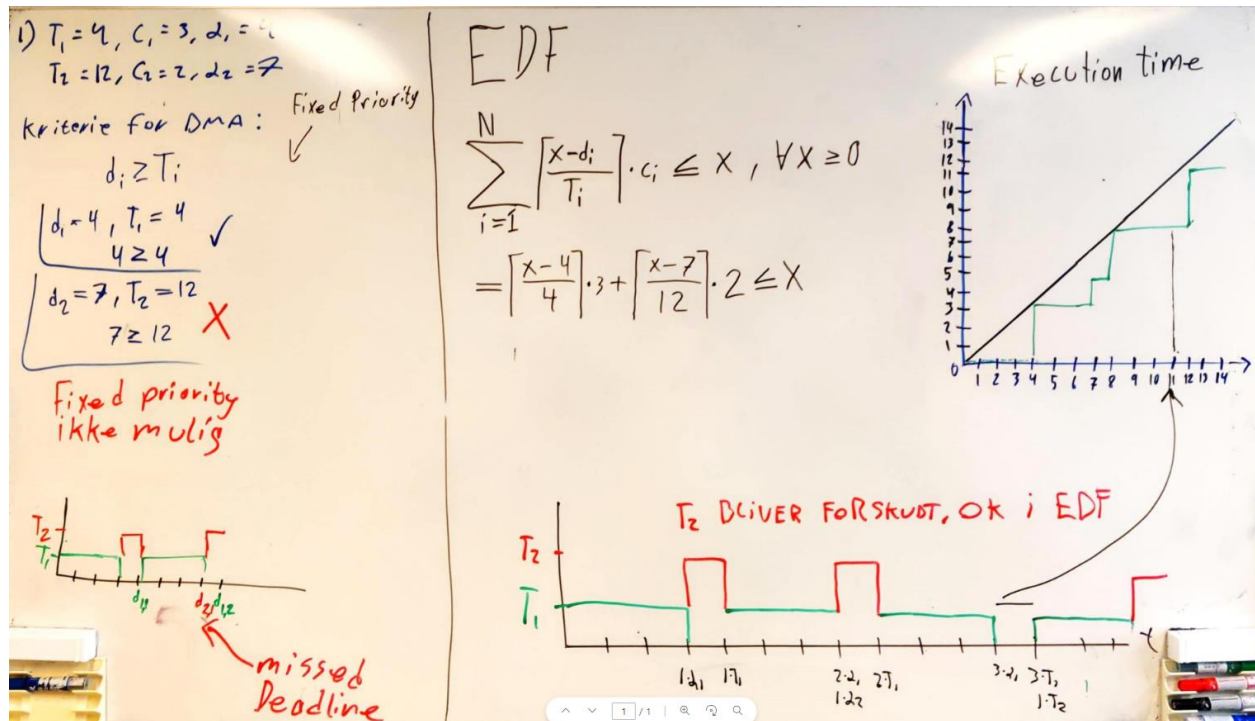 1) T₁ = 4, C₁ = 3, d₁ = 4
T₂ = 12, C₂ = 2, d₂ = 7
Kriterie for DMA:
Fixed Priority
dᵢ ≥ Tᵢ
d₁ = 4, T₁ = 4
4 ≥ 4 ✓
d₂ = 7, T₂ = 12
7 ≥ 12 X
Fixed priority
ikke mulig
T₂
T₁
d₁,₁ d₂,₁ d₁,₂
missed
Deadline
EDF
N
∑ ⌈(x-dᵢ)/Tᵢ⌉ · cᵢ ≤ x, ∀x ≥ 0
i=1
= ⌈(x-4)/4⌉ · 3 + ⌈(x-7)/12⌉ · 2 ≤ x
Execution time
14
13
12
11
10
9
8
7
6
5
4
3
2
1
0 1 2 3 4 5 6 7 8 9 10 11 12 13 14
T₂ BLIVER FORSKUDT, OK i EDF
T₂
T₁
t
1·d₁ 1·T₁ 2·d₁ 2·T₁ 3·d₁ 3·T₁
1·d₂ 1·T₂
1 / 1